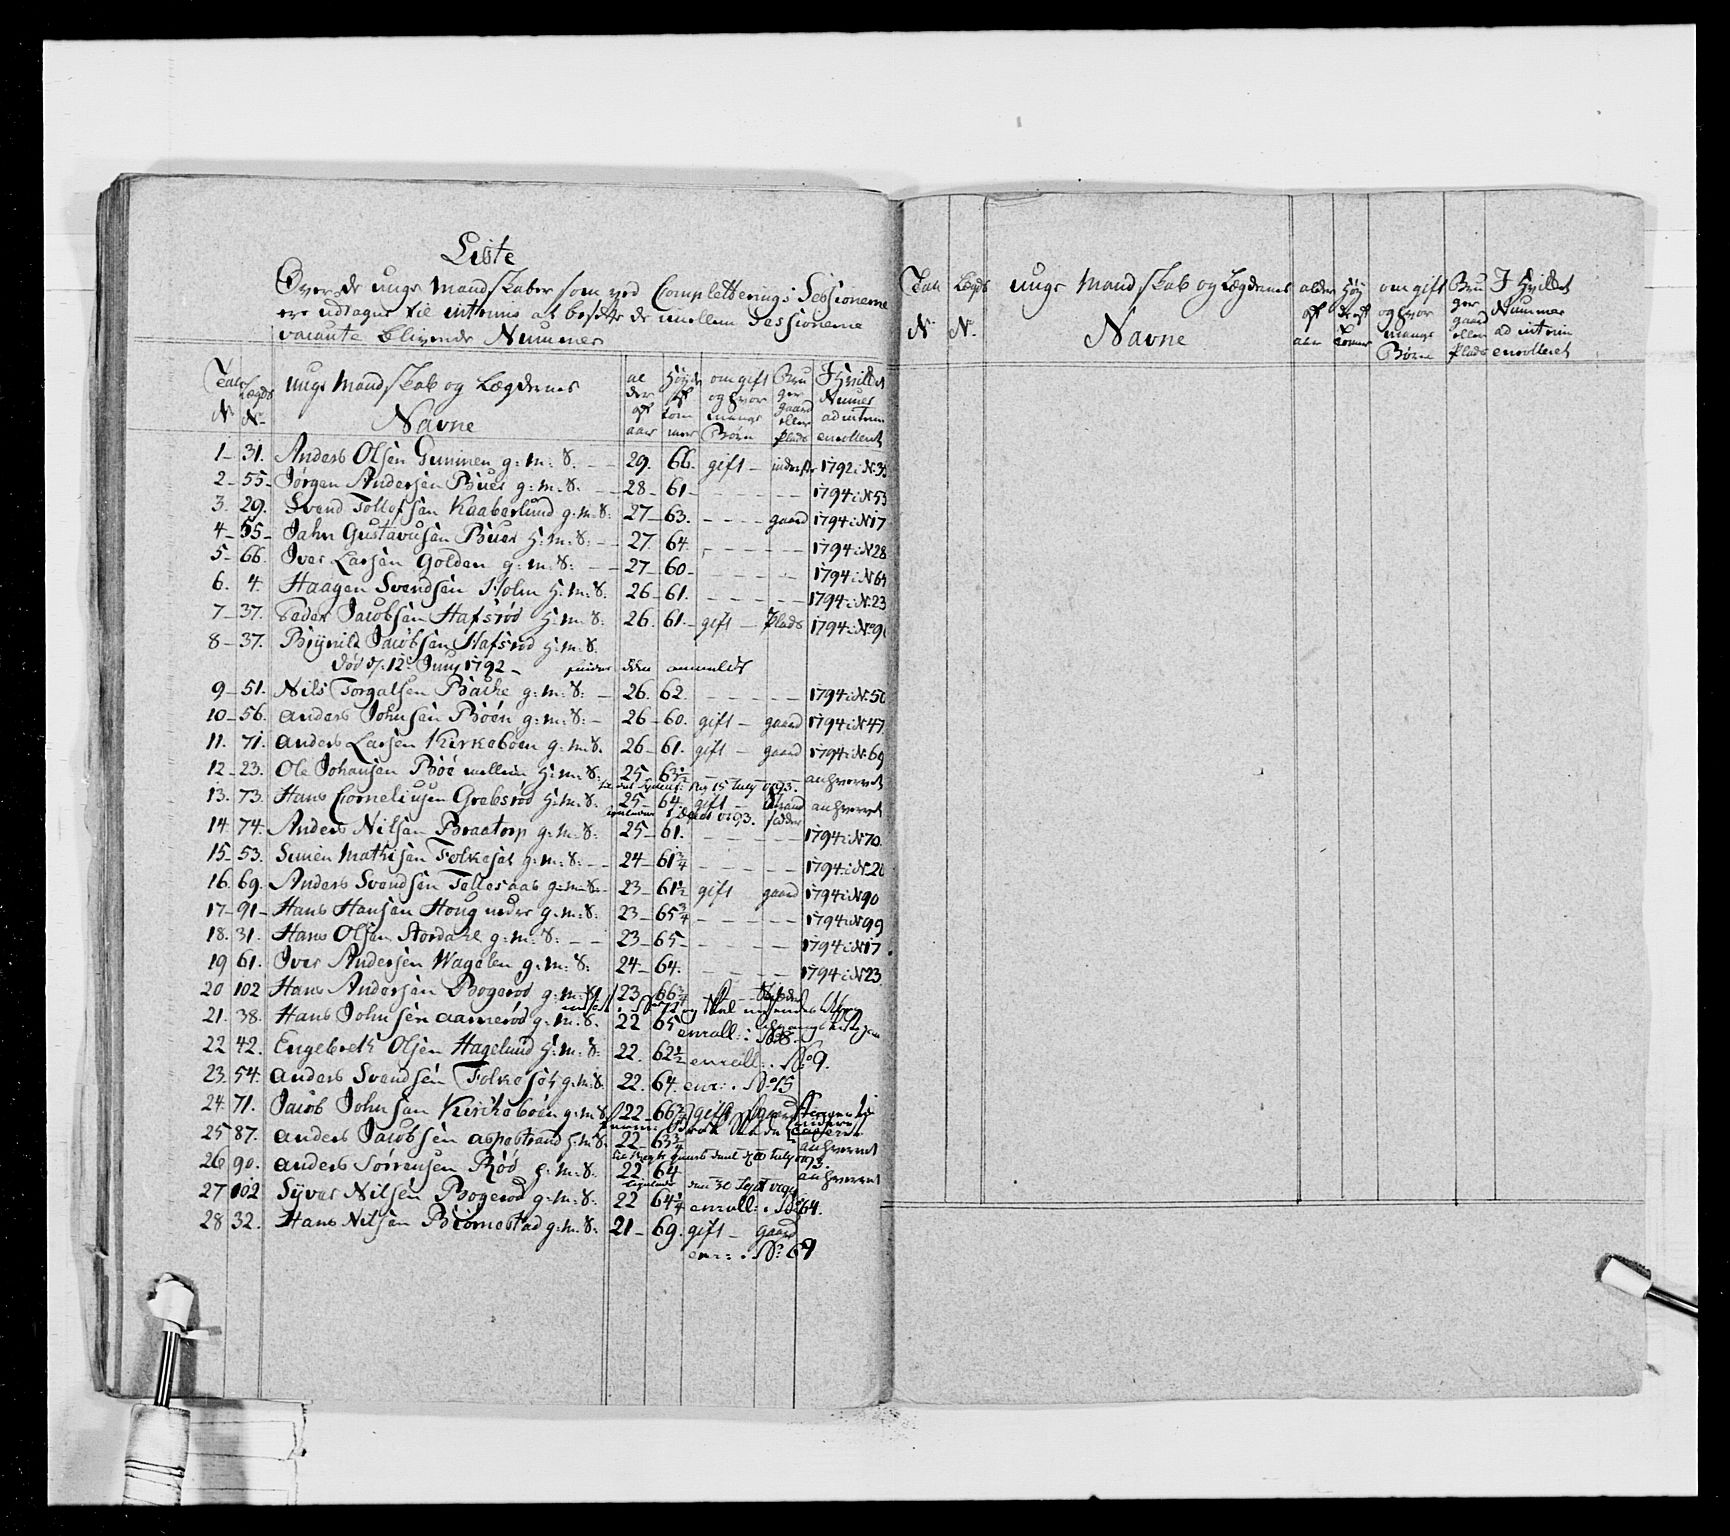 Liste
Over de unge Mandskaber som ved Completterings Sessionerne
ere udtagne til interims at besette de imellem Sessionerne
vacante blivende Nummer
Taal N: Lægds N: unge Mandskab og Lægdernes Navne al der af aar Høyde af tom mer om gift og hvor mange Børn Bru ger gaard eller Plads I Hvilket Numer ad interim enrolleret
1 - 31. Anders Olsen Gummen g: M: S. - - 29. 66. gift - inderste 1792 i N: 3
2 - 55 - Jørgen Andersen Buer g: M: S. - - 28 - 61 - - - - - 1794 i N 53
3. 29. Svend Tollefsen Kaaberlund g: M: S: 27 - 63. - - - - gaard 1794 i N 17
4 - 55 - Jahn Gustavusen Buer H: M: S: - - 27. 64. - - - - 1794 i N 28
5 - 66. Iver Larsen Golden g: M: S: - - 27 - 60 - - - - 1794 i N 6
6. 4. Haagen Svendsen Holm H: M: S. 26 - 61. - - - - 1794 i N. 23
7 - 37. Peder Jacobsen Hafsrød H: M: S: 26. 61. - gift - Plads 1794 i No 9
8 - 37. Brynild Jacobsen Hafsrød H: M: S.
død d: 12 Juny 1792 -
9 - 51. Nils Torgalsen Bache g: M: S: - 26. 62. - - - - 1794 i N. 50
10 - 56. Anders Johnsen Bøen g: M: S: - 26 - 60. gift - gaard 1794 i N 47.
11. 71. Anders Larsen Kirkebøen g: M: S. 26 - 61. gift - gaard 1794 i N. 69
12 - 23. Ole Johansen Bøe mellem H: M: S: 25 - 63½ - - - anhverret
15 July 1793.
13. 73. Hans Corneliusen Grebsrød H: M: S. 25 - 64. gift - Strand sidder anhverret
1793.
14. 74. Anders Nilsen Braatorp g: M: S: 25 - 61. - - - 1794 i N 70.
15 - 53. Simen Mathisen Folkesøe g: M: S: - - 24 - 61¾ - - - - 1794 i N. 20
16. 69. Anders Svendsen g: M: S. - 23 - 61½ gift - gaard 1794 i N 90
17 - 91 - Hans Hansen Houg nedre g: M: S: 23 - 65¾ - - - - 1794 i N 99
18. 31. Hans Olsen Stordahl g: M: S: - - 23 - 65 - - - - - 1794 i N 17
19 61. Iver Andersen Wagelen g: M: S: 24 - 64. - - - - 1794 i N 23
20 102 Hans Andersen Bogerød g: M: S. 23 66¾
21. 38. Hans Johnsen Aamerød g: M: S. 22 65 enroll: i No 8.
22 42. Engebreth Olsen Hagelund H: M: S: 22. 62½ enroll: i No 9.
23. 54. Anders Svendsen Folkesøe g: M: S. 22. 64. enr: i No 15
24. 71. Jacob Johnsen Kirkebøen g: M: S 22 - 66¾ gift gaard
25 87. Anders Jacobsen Aspestrand H: M: S. 22 - 63¾ anhverret
26 90. Anders Sørensen Rød H: M: S. 22 64 anhverret
den 30 Sept
27 102 Syver Nilsen Bogerød g: M: S. 22 64¼ enroll: i No 64.
28 32. Hans Nilsen Biørnestad g: M: S: 21 - 69. gift - gaard
enr: i No: 67
Taal N: Lægds N: unge Mandskab og Lægdernes Navne alder af aar Høyde af tomer om gift og hvor mange Børn Bru ger gaard eller Plads I Hvilket Nummer ad interim enrolleret